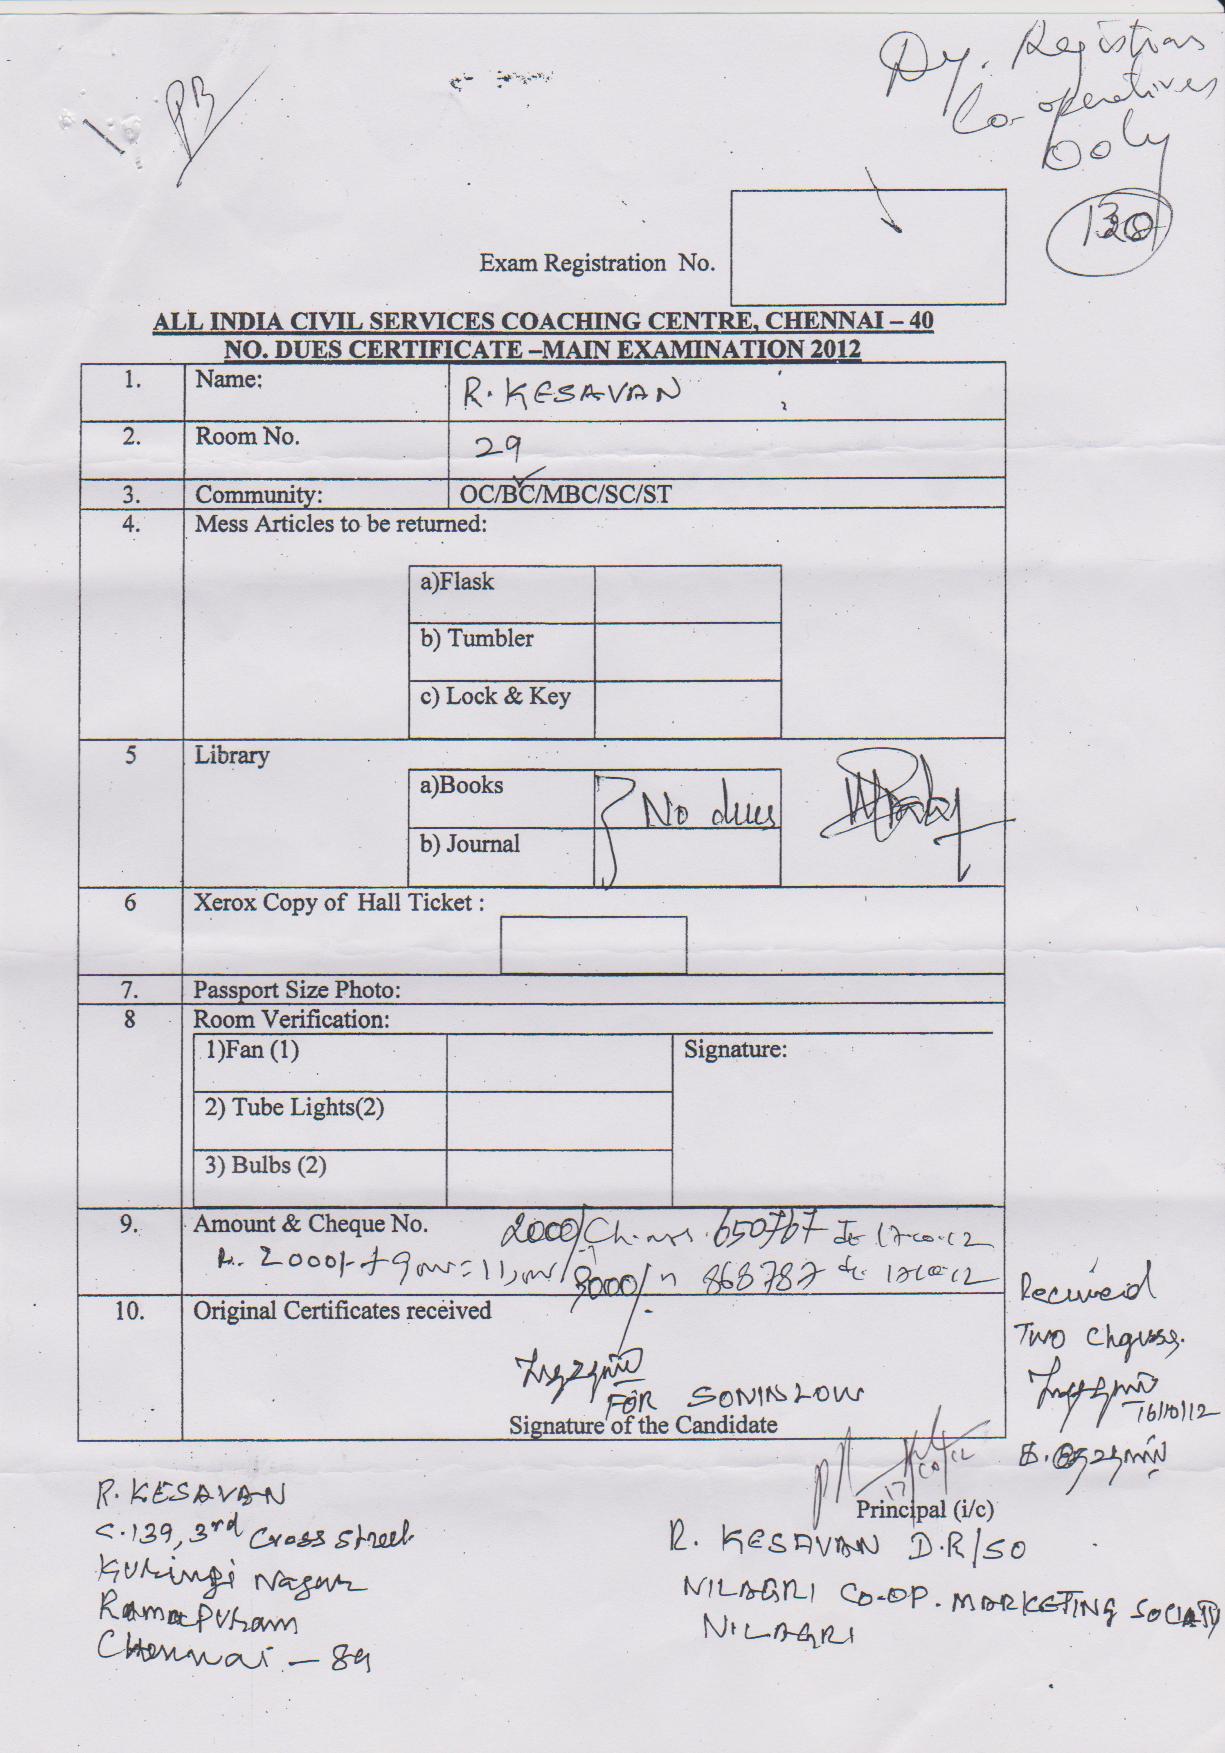 Dy. Registrar
Co-operatives
Ooty
PB
Exam Registration No.
ALL INDIA CIVIL SERVICES COACHING CENTRE, CHENNAI – 40
NO. DUES CERTIFICATE –MAIN EXAMINATION 2012
1. Name: R. KESAVAN
2. Room No. 29
3. Community: OC/BC/MBC/SC/ST
4. Mess Articles to be returned:
a)Flask
b) Tumbler
c) Lock & Key
5 Library
a)Books
No dues
b) Journal
6 Xerox Copy of Hall Ticket :
7. Passport Size Photo:
8 Room Verification:
1)Fan (1) Signature:
2) Tube Lights(2)
3) Bulbs (2)
9. Amount & Cheque No. 2000/ 650767
2000/- + 868787
10. Original Certificates received
Received
Two
16/10/12
FOR
Signature of the Candidate
Principal (i/c)
R. KESAVAN
C.139, 3rd Cross Street
Kuringi Nagar
Ramapuram
Chennai – 89
R. KESAVAN D.R/SO
NILAGRI CO-OP. MARKETING SOCIETY
NILAGRI